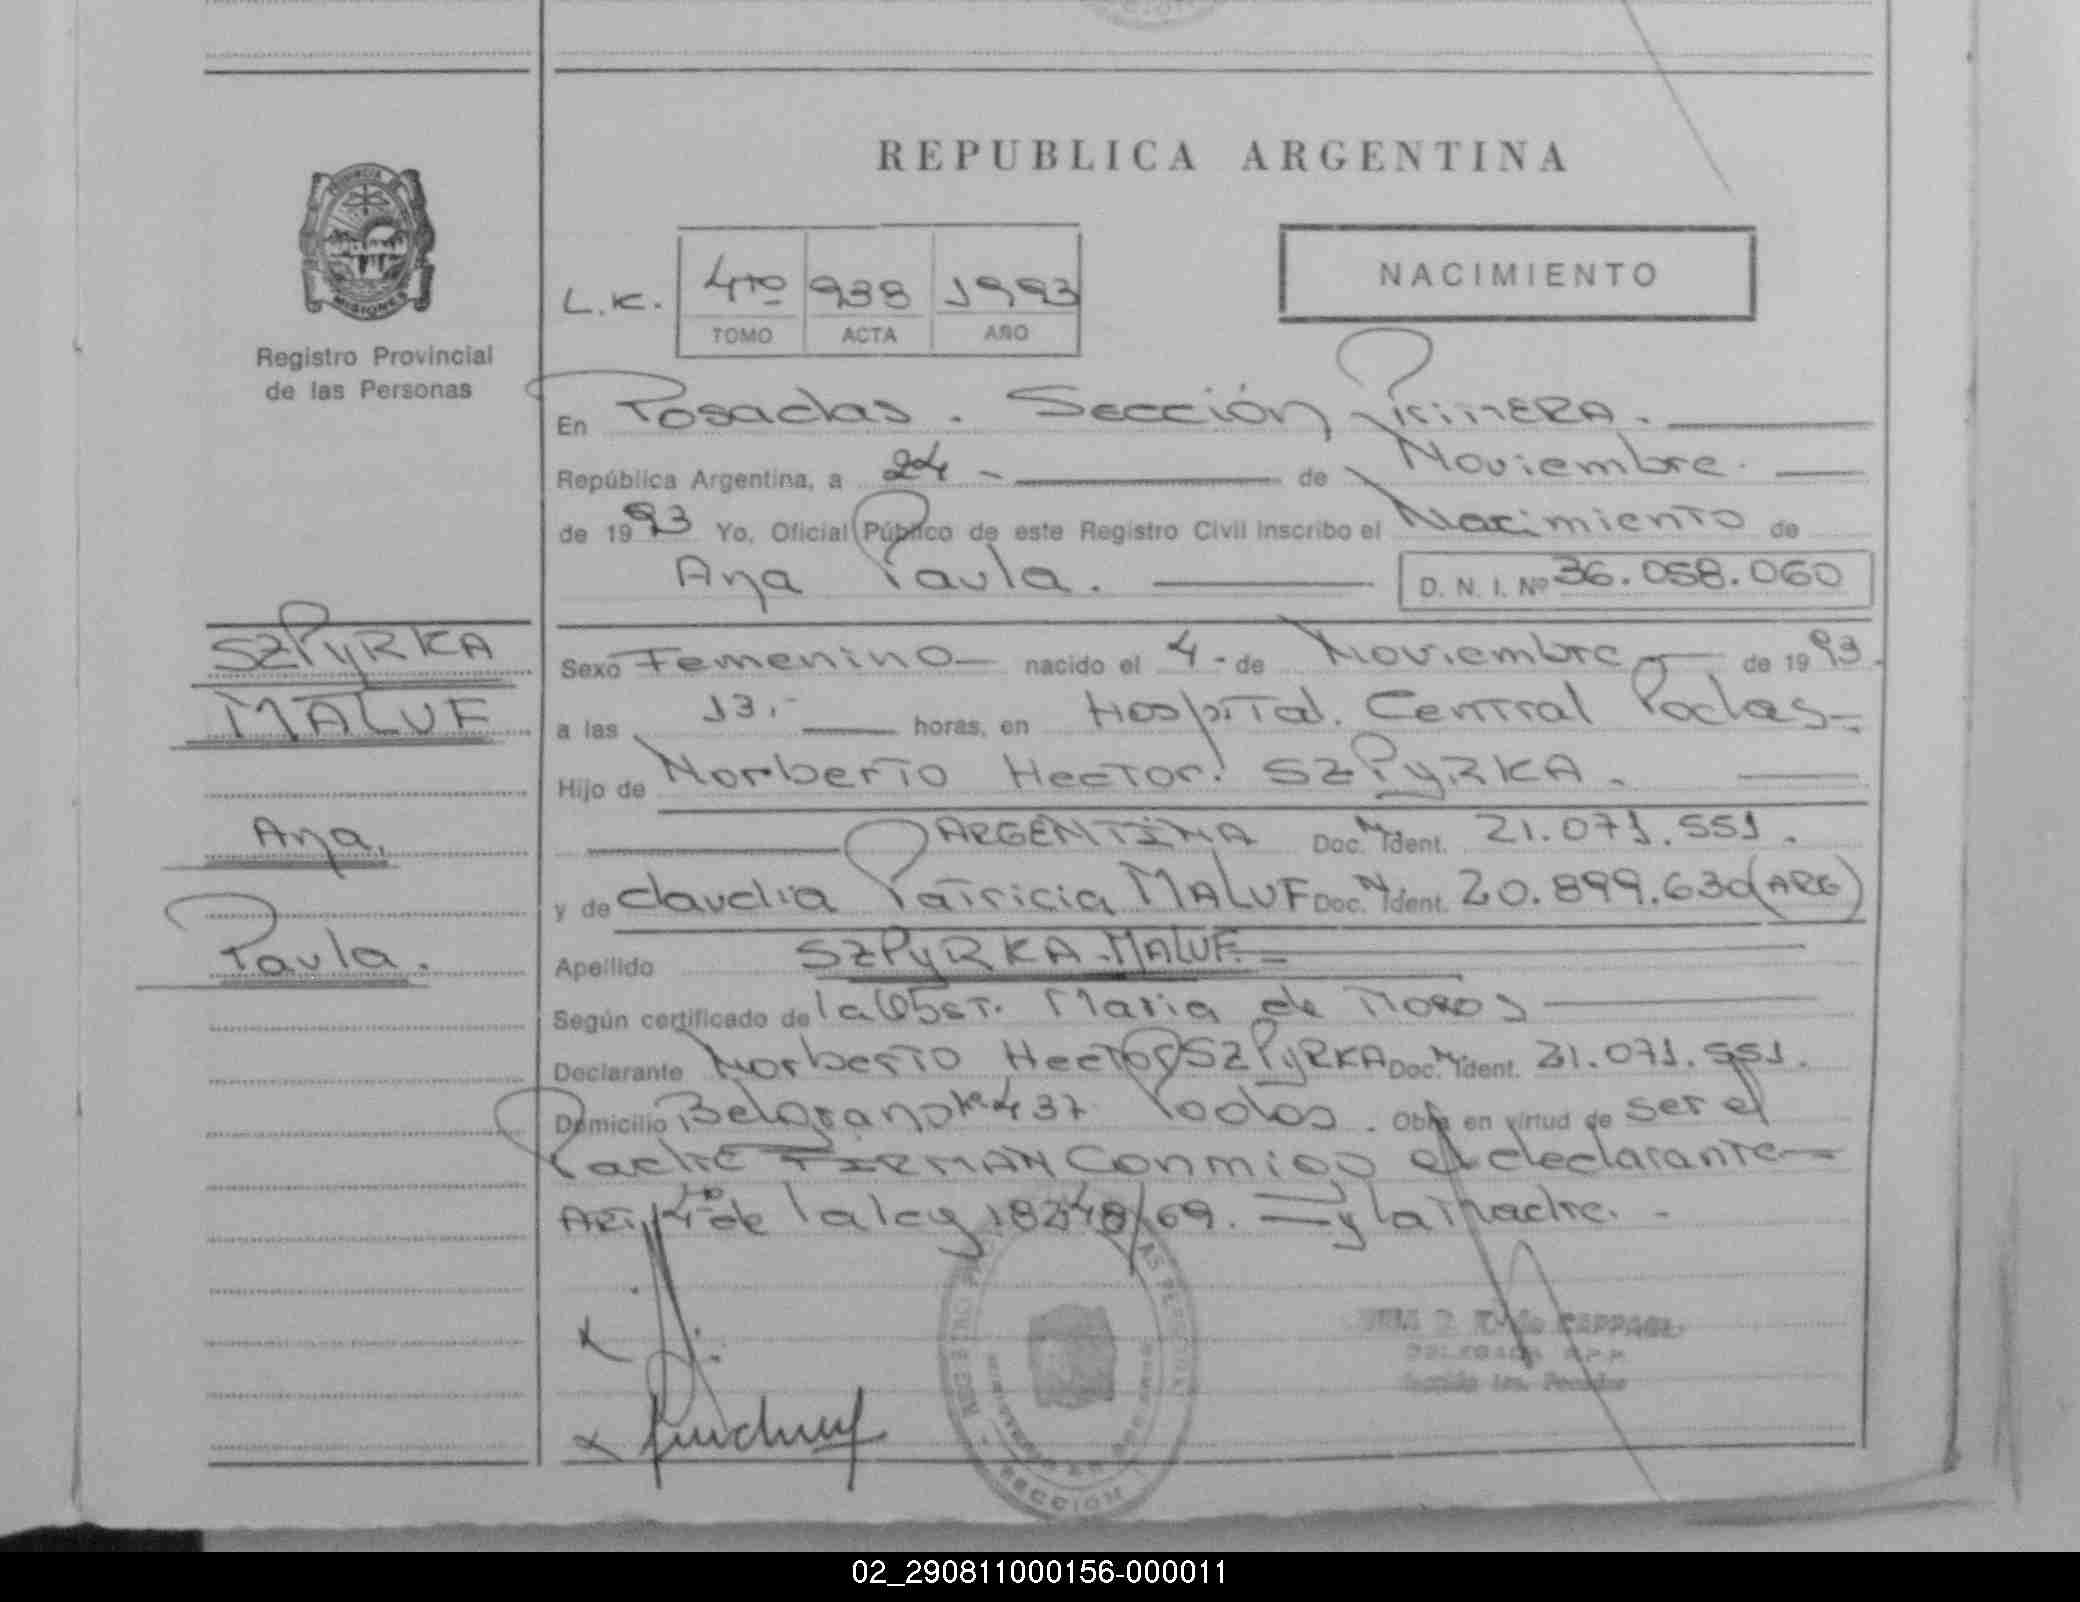 REPUBLICA ARGENTINA
PROVINCIA DE
MISIONES
Registro Provincial
de las Personas
L.K. 4to 938 1993
TOMO ACTA AÑO
NACIMIENTO
En Posadas. Sección Primera.
República Argentina, a 24 - de Noviembre.
de 1993 Yo, Oficial Público de este Registro Civil Inscribo el Nacimiento de
Ana Paula. D. N. I. Nº 36.058.060
SZPYRKA
MALUF
Ana.
Paula.
Sexo Femenino nacido el 4 - de Noviembre de 1993.
a las 13.- horas, en Hospital. Central Podas-
Hijo de Norberto Hector. SZPYRKA.
ARGENTINA Doc. N. Ident. 21.071.551.
y de Claudia Patricia MALUF Doc. N. Ident. 20.899.630 (ARG)
Apellido SZPYRKA-MALUF.-
Según certificado de la Obst. Maria de
Declarante Norberto Hector SZPYRKA Doc. N. Ident. 21.071.551.
Domicilio Belgrano Nº 437 Podas. Obra en virtud de ser el
Padre FIRMAN Conmigo el declarante
Art. 4º de la ley 18248/69. y la Madre. -
DELEGADA R.P.P.
Sección 1ra. Posadas
SECCION
02_290811000156-000011